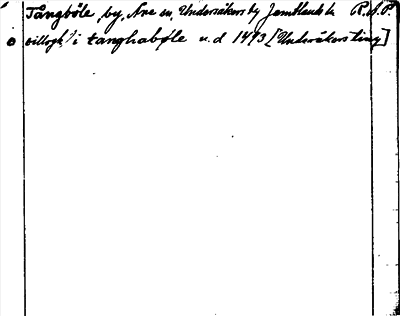 Tångböle, by, Åre sn, Undersåkers tg Jämtlands l. R.A.P.
i tanghabøle u.d 1473 [Undersåkers ting]